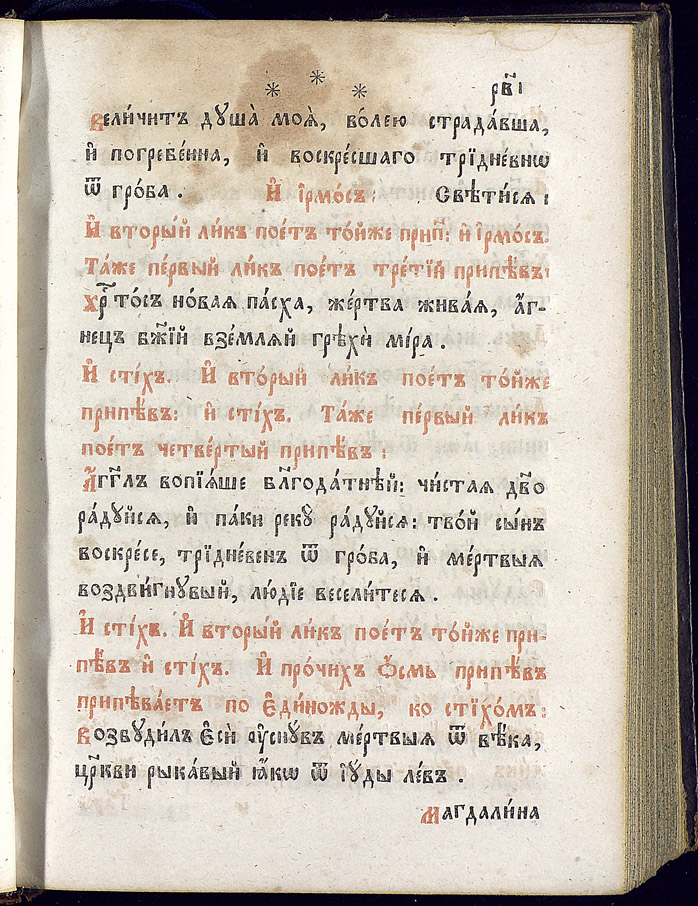 * * * рв҃і
Вели́читъ дꙋша̀ моѧ̀, во́лею страда́вша,
и҆ погребе́нна, и҆ воскре́сшаго трїдне́внѡ
ѿ гро́ба . И҆ і҆рмо́съ: Свѣти́сѧ :
И҆ вторы́й ли́къ пое́тъ то́йже прип: и҆ і҆рмо́съ.
Та́же пе́рвый ли́къ пое́тъ тре́тїй припѣ́въ:
Хрⷭ҇то́съ но́ваѧ па́сха, же́ртва жива́ѧ, а҆́г-
нецъ бж҃їй взе́млѧй грѣхѝ ми́ра .
И҆ сті́хъ. И҆ вто́рый ли́къ пое́тъ то́йже
припѣ́въ: и҆ сті́хъ. Та́же пе́рвый ли́къ
пое́тъ четве́ртый припѣ́въ :
А҆́гг҃лъ вопїѧ́ше бл҃года́тнѣй: чи́стаѧ дв҃о
ра́дꙋйсѧ, и҆ па́ки рекꙋ̀ ра́дꙋйсѧ: тво́й сы́нъ
воскре́се, трїдне́венъ ѿ гро́ба, и҆ ме́ртвыѧ
воздви́гнꙋвый, лю́дїе весели́тесѧ .
И҆ сті́хъ. И҆ вторы́й ли́къ пое́тъ то́йже при-
пѣ́въ и҆ сті́хъ. И҆ про́чихъ ѻ҆́смь припѣ́въ
припѣва́етъ по є҆ди́ножды, ко стїхо́мъ:
Возбꙋди́лъ є҆сѝ ᲂу҆снꙋ́въ ме́ртвыѧ ѿ вѣ́ка,
цр҃кви рыка́вый ꙗ҆́кѡ ѿ і҆ꙋ́ды ле́въ .
Магдали́на